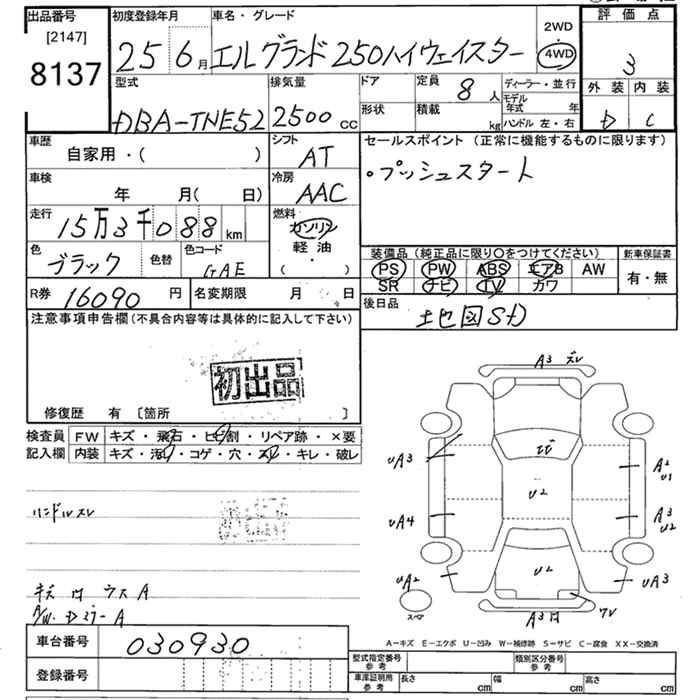 出品番号
[2147]
8137
初度登録年月
25 6月
車名・グレード
エルグランド 250ハイウェイスター
2WD
・
4WD
評価点
3
型式
DBA-TNE52
排気量
2500 cc
ドア
形状
定員
8人
積載
kg
ディーラー・並行
モデル年式 年
ハンドル 左・右
外装 内装
D C
車歴
自家用・( )
シフト
AT
セールスポイント(正常に機能するものに限ります)
・プッシュスタート
車検
年 月(日)
冷房
AAC
走行
15万3千088 km
燃料
ガソリン
軽油
( )
色
ブラック
色替
色コード
GAE
装備品(純正品に限り○をつけてください)
PS PW ABS エアB AW
SR ナビ TV カワ
新車保証書
有・無
R券 16090 円
名変期限 月 日
後日品
地図SD
注意事項申告欄(不具合内容等は具体的に記入して下さい)
初出品
修復歴 有 [箇所 ]
検査員
記入欄
FW キズ・飛石・ヒビ割・リペア跡・×要
内装 キズ・汚れ・コゲ・穴・スレ・キレ・破レ
ハンドルスレ
A/W・Dミラー A
A3 ズレ
UA3
A2
U1
U2
UA4
A3
U2
UA2
U2
UA3
スペア
A3
ワレ
車台番号 030930
登録番号
A-キズ E-エクボ U-凹み W-補修跡 S-サビ C-腐食 XX-交換済
型式指定番号
参考
類別区分番号
参考
車庫証明用
参考
長さ cm
幅 cm
高さ cm